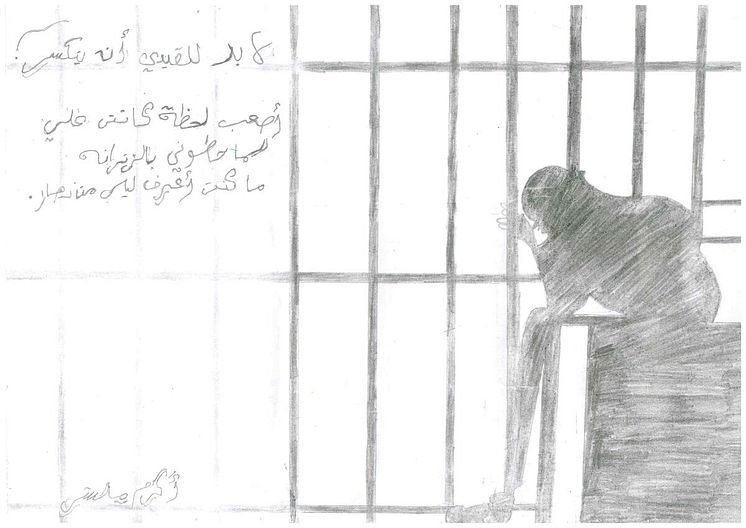 لا بد للقيد أن ينكسر!
أصعب لحظة كانت علي
لما حطوني بالزنزانه
ما كنت أعرف ليل من نهار.
أكرم